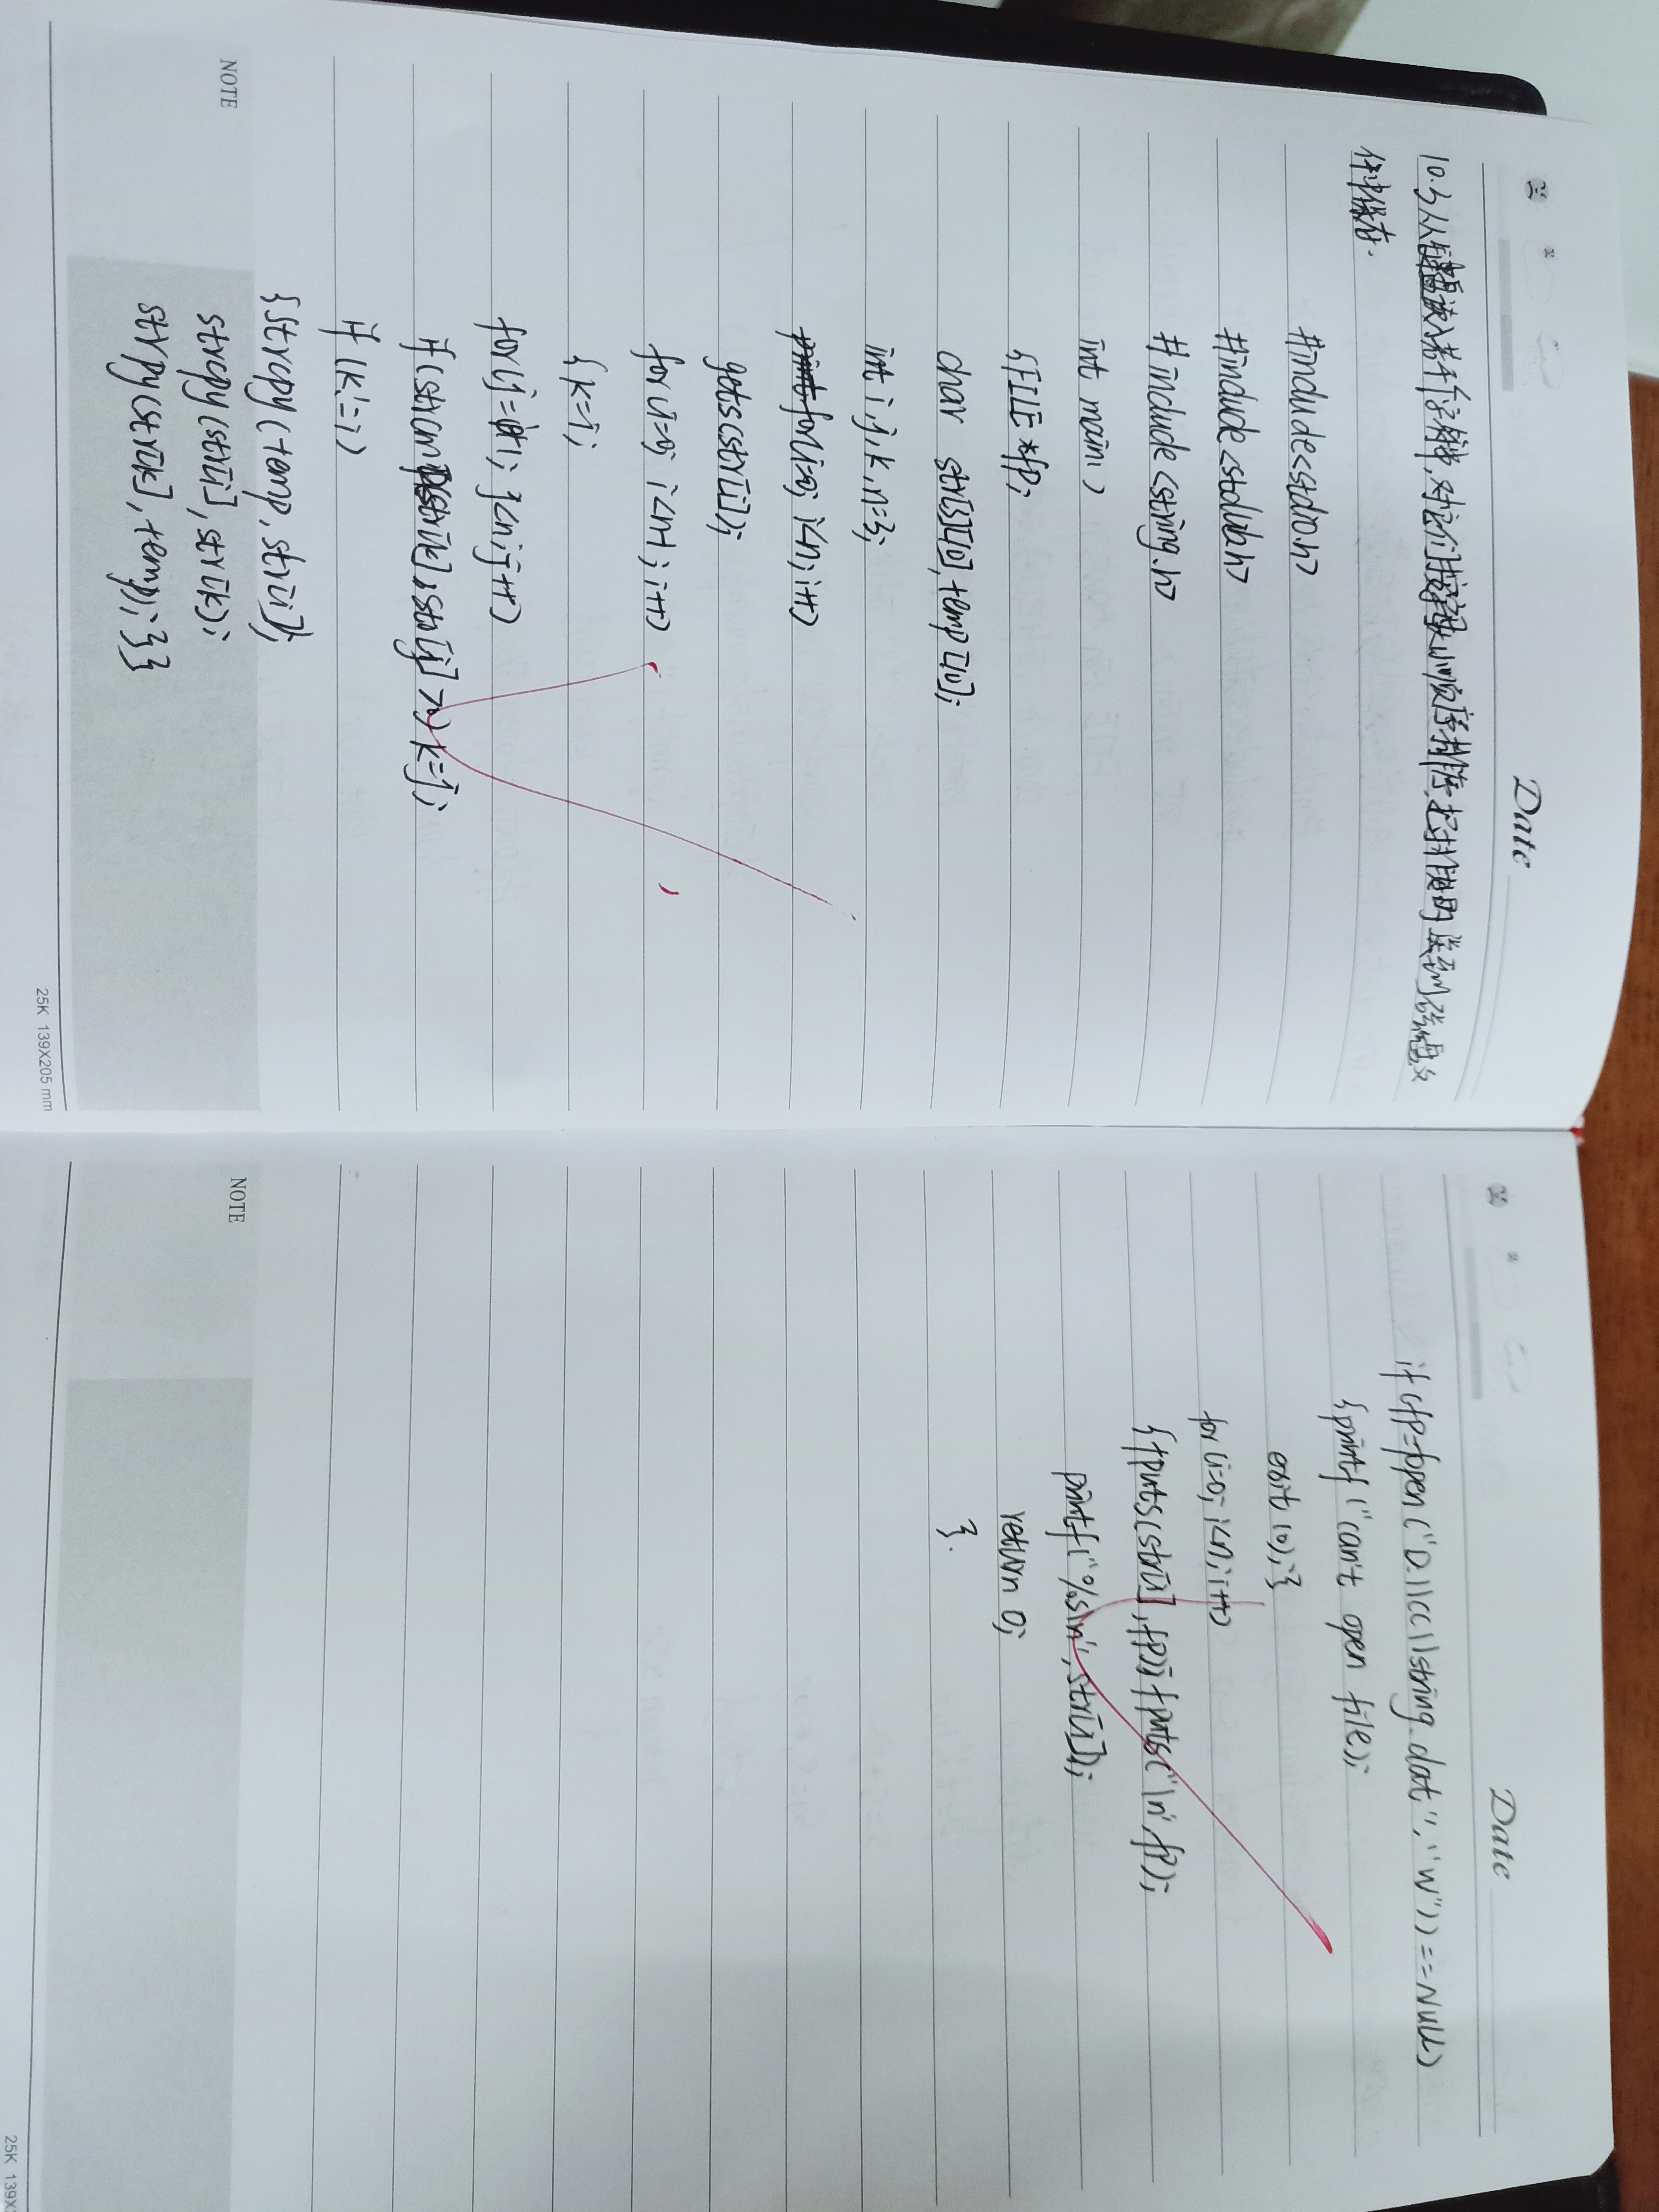 Date
10.3 从键盘读入若干个字符串,对它们按字母大小顺序排序,把排好的送到磁盘文
件中保存.
#include<stdio.h>
#include<stdlib.h>
#include<string.h>
int main()
{FILE *fp;
char str[3][10], temp[10];
int i,j,k,n=3;
for(i=0; i<n; i++)
gets(str[i]);
for(i=0; i<n-1; i++)
{k=i;
for(j=i+1; j<n; j++)
if(strcmp(str[k],str[j]>0) k=j;
if(k!=i)
{strcpy(temp,str[i]);
strcpy(str[i],str[k);
strpy(str[k],temp);}}
NOTE
25K 139X205 mm
Date
if(fp=fopen("D.\\cc\\string.dat","w"))==NULL)
{printf("can't open file);
exit(0);}
for(i=0; i<n; i++)
{fputs(str[i],fp); fputs("\n",fp);
printf("%s\n",str[i]);
return 0;
}.
NOTE
25K 139X